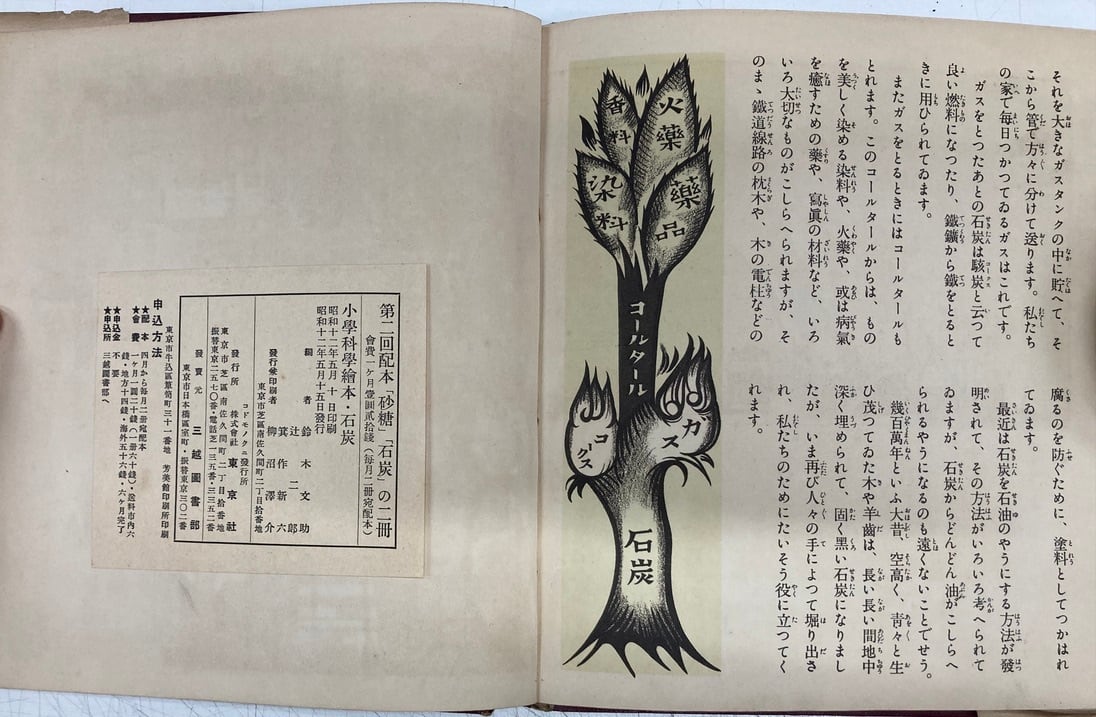 それを大きなガスタンクの中に貯へて、そ
こから管で方々に分けて送ります。私たち
の家で毎日つかつてゐるガスはこれです。
ガスをとつたあとの石炭は骸炭と云つて
良い燃料になつたり、鐵鑛から鐵をとると
きに用ひられてゐます。
またガスをとるときにはコールタールも
とれます。このコールタールからは、もの
を美しく染める染料や、火藥や、或は病氣
を癒すための藥や、寫眞の材料など、いろ
いろ大切なものがこしらへられますが、そ
のまゝ鐵道線路の枕木や、木の電柱などの
腐るのを防ぐために、塗料としてつかはれ
てゐます。
最近は石炭を石油のやうにする方法が發
明されて、その方法がいろいろ考へられて
ゐますが、石炭からどんどん油がこしらへ
られるやうになるのも遠くないことでせう。
幾百萬年といふ大昔、空高く、靑々と生
ひ茂つてゐた木や羊齒は、長い長い間地中
深く埋められて、固く黑い石炭になりまし
たが、いま再び人々の手によつて堀り出さ
れ、私たちのためにたいそう役に立つてく
れます。
火藥
香料
藥品
染料
コールタール
ガス
コークス
石炭
第二回配本「砂糖」「石炭」の二冊
會費一ヶ月壹圓貳拾錢(每月二冊宛配本)
小學科學繪本・石炭
昭和十二年五月 十日印刷
昭和十二年五月十五日發行
編者 鈴木文助
辻二郎
箕作新六
發行兼印刷者 柳沼澤介
東京市芝區南佐久間町二丁目拾番地
コドモノクニ發行所
發行所 株式會社 東京社
東京市芝區南佐久間町二丁目拾番地
振替東京二五七〇番・電話芝一三五番・三三五二番
發賣元 三越圖書部
東京市日本橋區室町・振替東京三〇二番
東京市牛込區簞笥町三十一番地 芳美館印刷所印刷
申込方法
★配本 四月から每月二冊宛配本
★會費 一ヶ月一圓二十錢(一冊六十錢)・送料市內六
錢・地方十四錢・海外五十六錢・六ヶ月完了
★申込金 不要
★申込所 三越圖書部へ